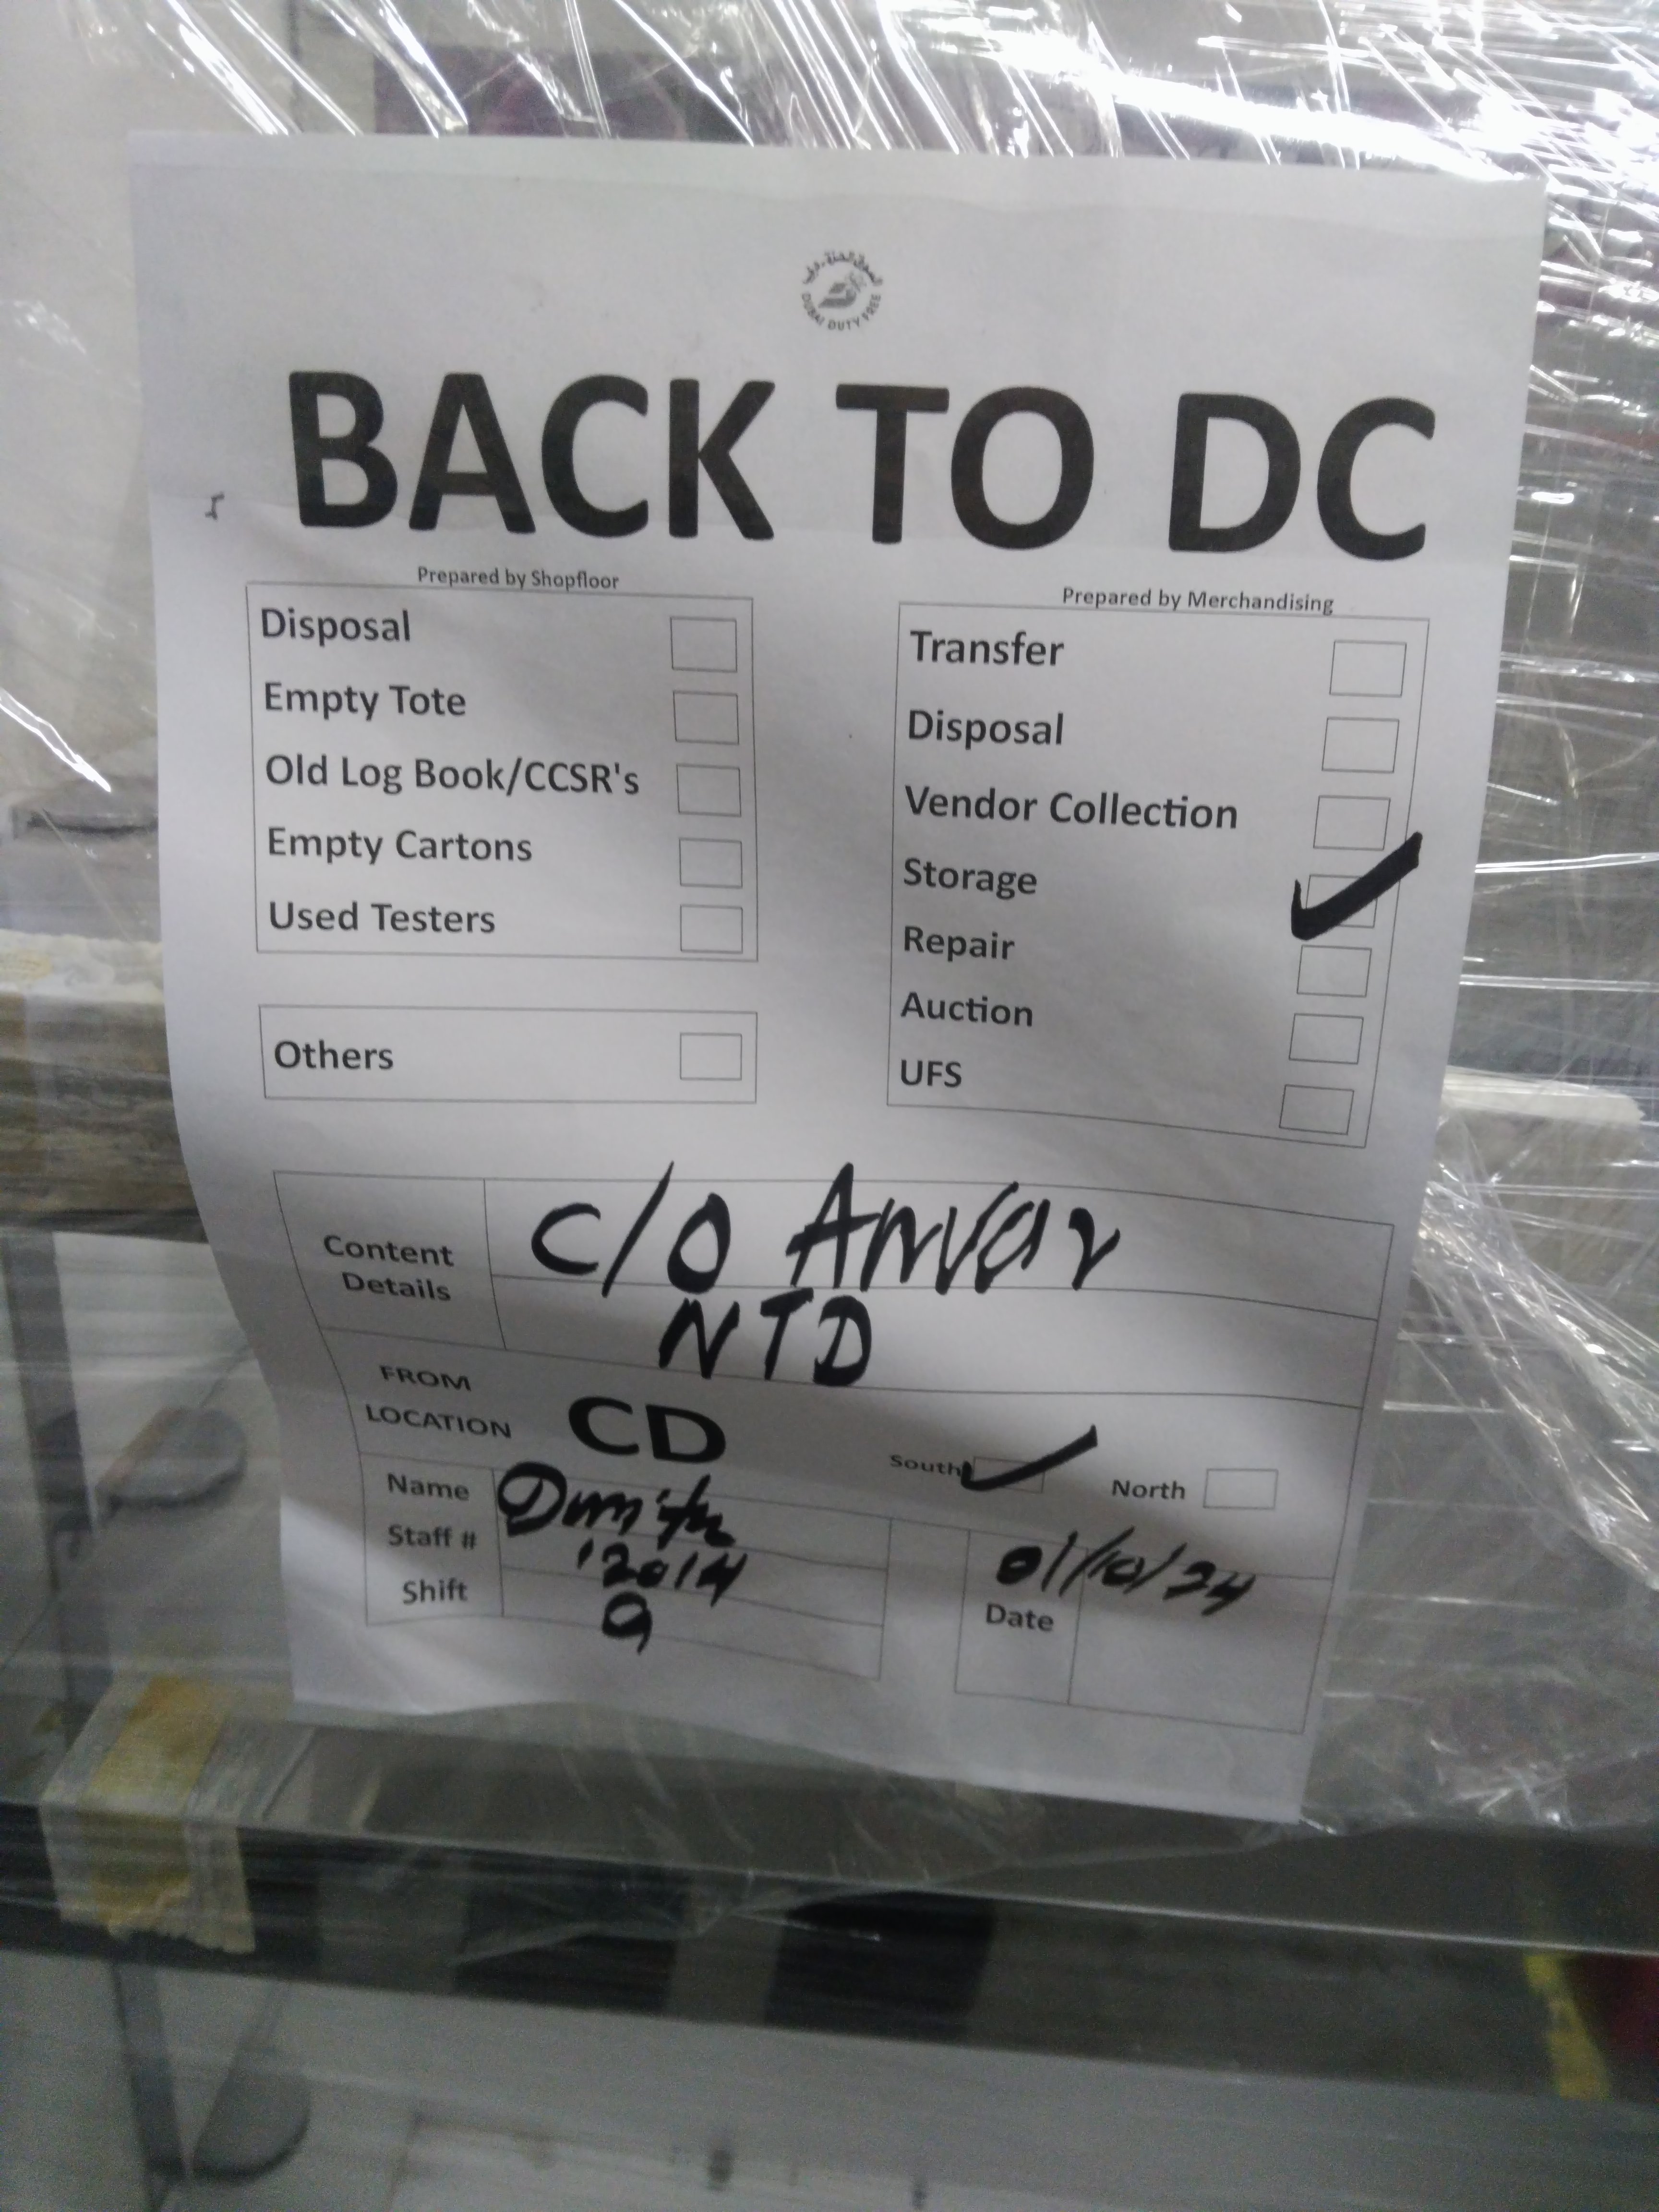 السوق الحرة - دبي
DUBAI DUTY FREE
BACK TO DC
Prepared by Shopfloor
Disposal
Empty Tote
Old Log Book/CCSR's
Empty Cartons
Used Testers
Others
Prepared by Merchandising
Transfer
Disposal
Vendor Collection
Storage
Repair
Auction
UFS
Content
Details
C/O Anvar
NTD
FROM
LOCATION
CD
South
North
Name
Staff # 12014
Shift
Date 01/10/24